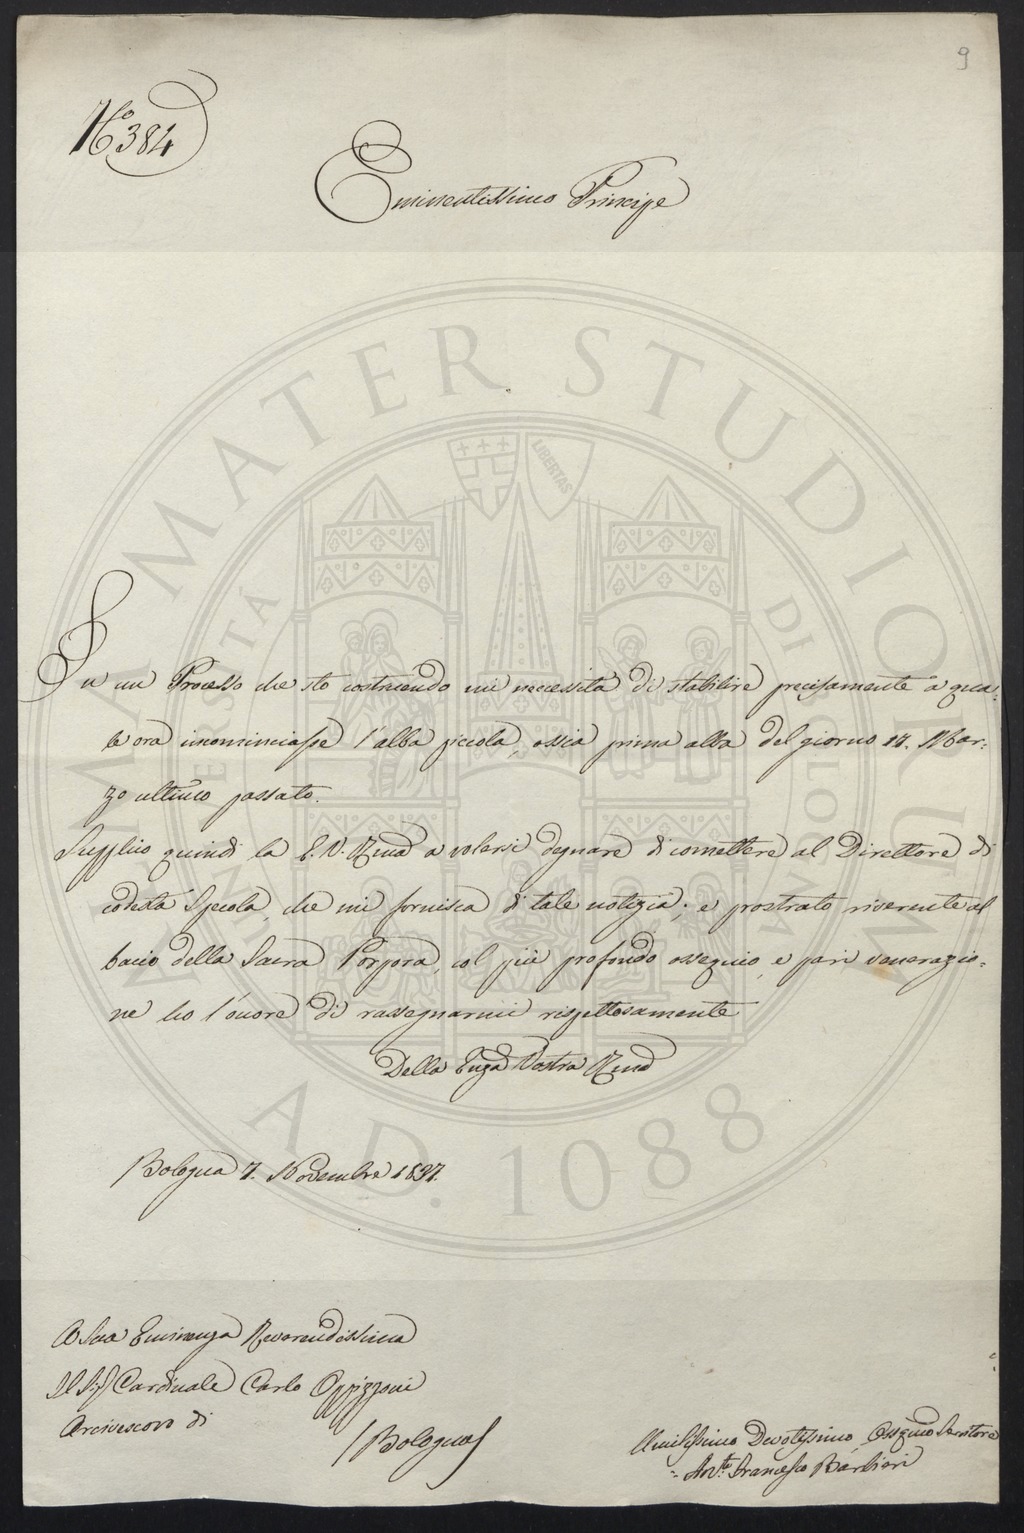 9
N.º 384
Eminentissimo Principe
In un Processo che sto costruendo mi necessita di stabilire precisamente a qua-
le ora incominciasse l'alba piccola, ossia prima alba del giorno 17. Mar-
zo ultimo passato.
Supplico quindi la E. V. Rma a volersi degnare di comettere al Direttore di
codesta Specola, che mi fornisca di tale notizia; e prostrato riverente al
bacio della Sacra Porpora, col più profondo ossequio, e pari venerazio-
ne ho l'onore di rassegnarmi rispettosamente
Della Emza Vostra Rma
Bologna 7. Novembre 1837.
A Sua Eminenza Reverendissima
Il Sig. Cardinale Carlo Oppizzoni
Arcivescovo di
Bologna
Umilissimo Devotissimo Ossequmo Servitore
Avv.to Francesco Barbieri
ALMA MATER STUDIORUM
UNIVERSITÀ DI BOLOGNA
LIBERTAS
A.D. 1088